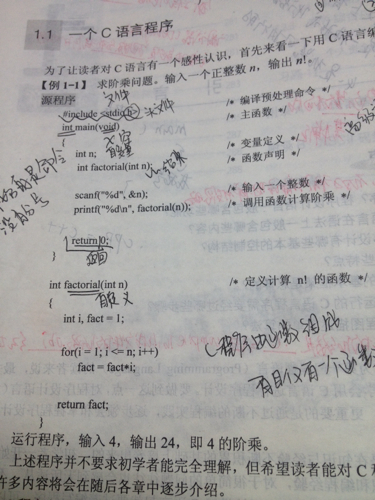 1.1 一个 C 语言程序
为了让读者对 C 语言有一个感性认识，首先来看一下用 C 语言编
【例 1-1】 求阶乘问题。输入一个正整数 n，输出 n!。
源程序
文件
#include <stdio.h> /* 编译预处理命令 */
头文件
int main(void) /* 主函数 */
{
int n; /* 变量定义 */
int factorial(int n); /* 函数声明 */
结束
没有分号
scanf("%d", &n); /* 输入一个整数 */
printf("%d\n", factorial(n)); /* 调用函数计算阶乘 */
return 0;
}
int factorial(int n) /* 定义计算 n! 的函数 */
{
自定义
int i, fact = 1;
C程序由函数组成
for(i = 1; i <= n; i++)
fact = fact*i;
有且仅有一个函数
return fact;
}
运行程序，输入 4，输出 24，即 4 的阶乘。
上述程序并不要求初学者能完全理解，但希望读者能对 C 程
许多内容将会在随后各章中逐步介绍。